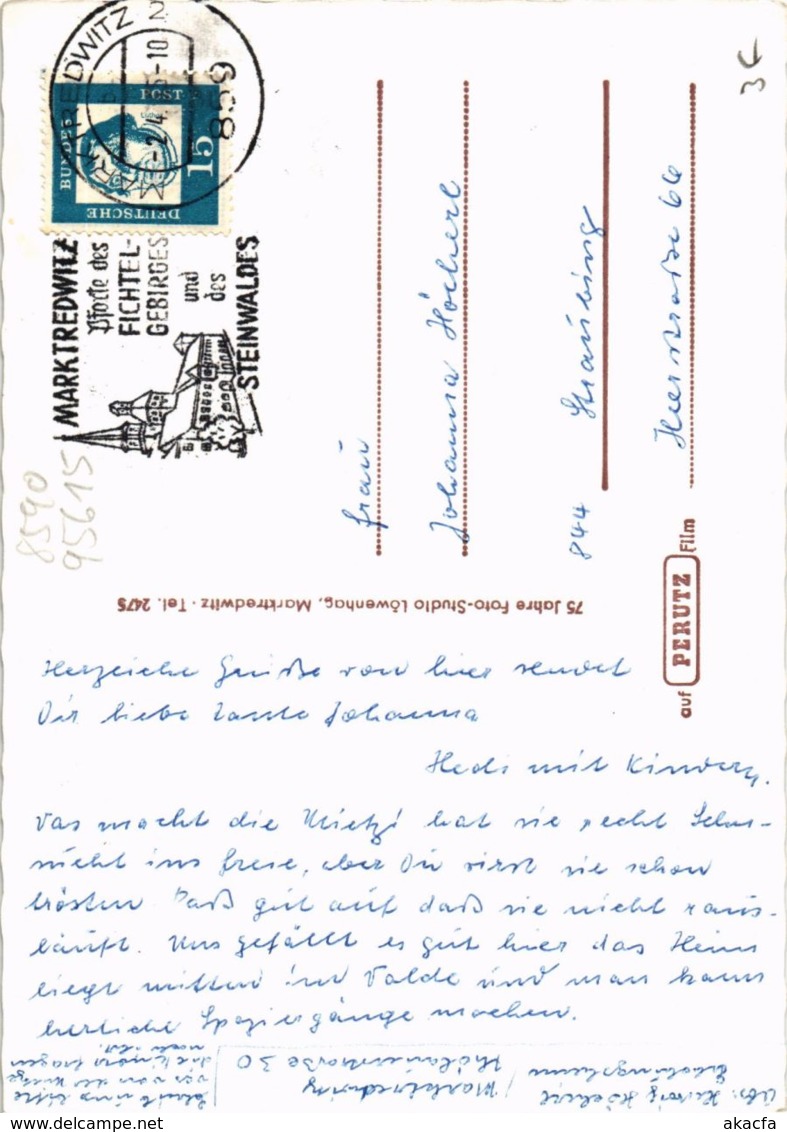 MARKTREDWITZ 2
859
-2.4. -10
DEUTSCHE BUNDESPOST
15
MARKTREDWITZ
Pforte des
FICHTEL-
GEBIRGES
und
des
STEINWALDES
3€
8590
95615
Frau
Johanna Höcherl
844 Straubing
Heerstraße 66
75 Jahre Foto-Studio Löwenhag, Marktredwitz · Tel. 2475
auf PERUTZ Film
Herzliche Grüße von hier sendet
Dir liebe Tante Johanna
Hedi mit Kindern.
Was macht die Mietzi hat sie recht
nicht ins Freie, aber Du wirst sie schon
trösten Paß gut auf daß sie nicht raus-
läuft. Uns gefällt es gut hier das Heim
liegt mitten im Walde und man kann
herliche Spaziergänge machen.
Abs. Hedwig Höcherl
Erholungsheim
Marktredwitz
30
Schreib uns bitte
was von der Mietzi
die Kinder fragen
akacfa